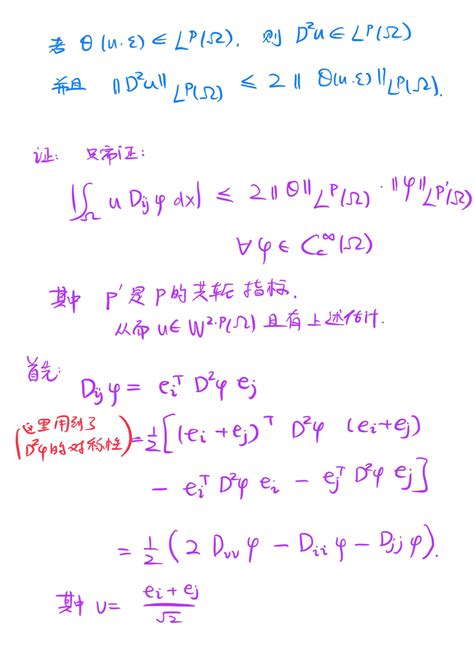 若 Θ(u.ε) ∈ L^P(Ω), 则 D²u ∈ L^P(Ω)
并且 ||D²u||_{L^P(Ω)} ≤ 2 || Θ(u.ε)||_{L^P(Ω)}.
证: 只需证:
|∫_Ω u D_{ij} φ dx| ≤ 2 ||Θ||_{L^P(Ω)} · ||φ||_{L^{P'}(Ω)}
∀ φ ∈ C_c^∞(Ω)
其中 P' 是 P 的共轭指标,
从而 u ∈ W^{2.P}(Ω) 且有上述估计.
首先:
D_{ij} φ = e_i^T D²φ e_j
(这里用到了
D²φ的对称性) = 1/2 [(e_i + e_j)^T D²φ (e_i + e_j)
- e_i^T D²φ e_i - e_j^T D²φ e_j]
= 1/2 (2 D_{νν} φ - D_{ii} φ - D_{jj} φ).
其中 ν = (e_i + e_j)/√2